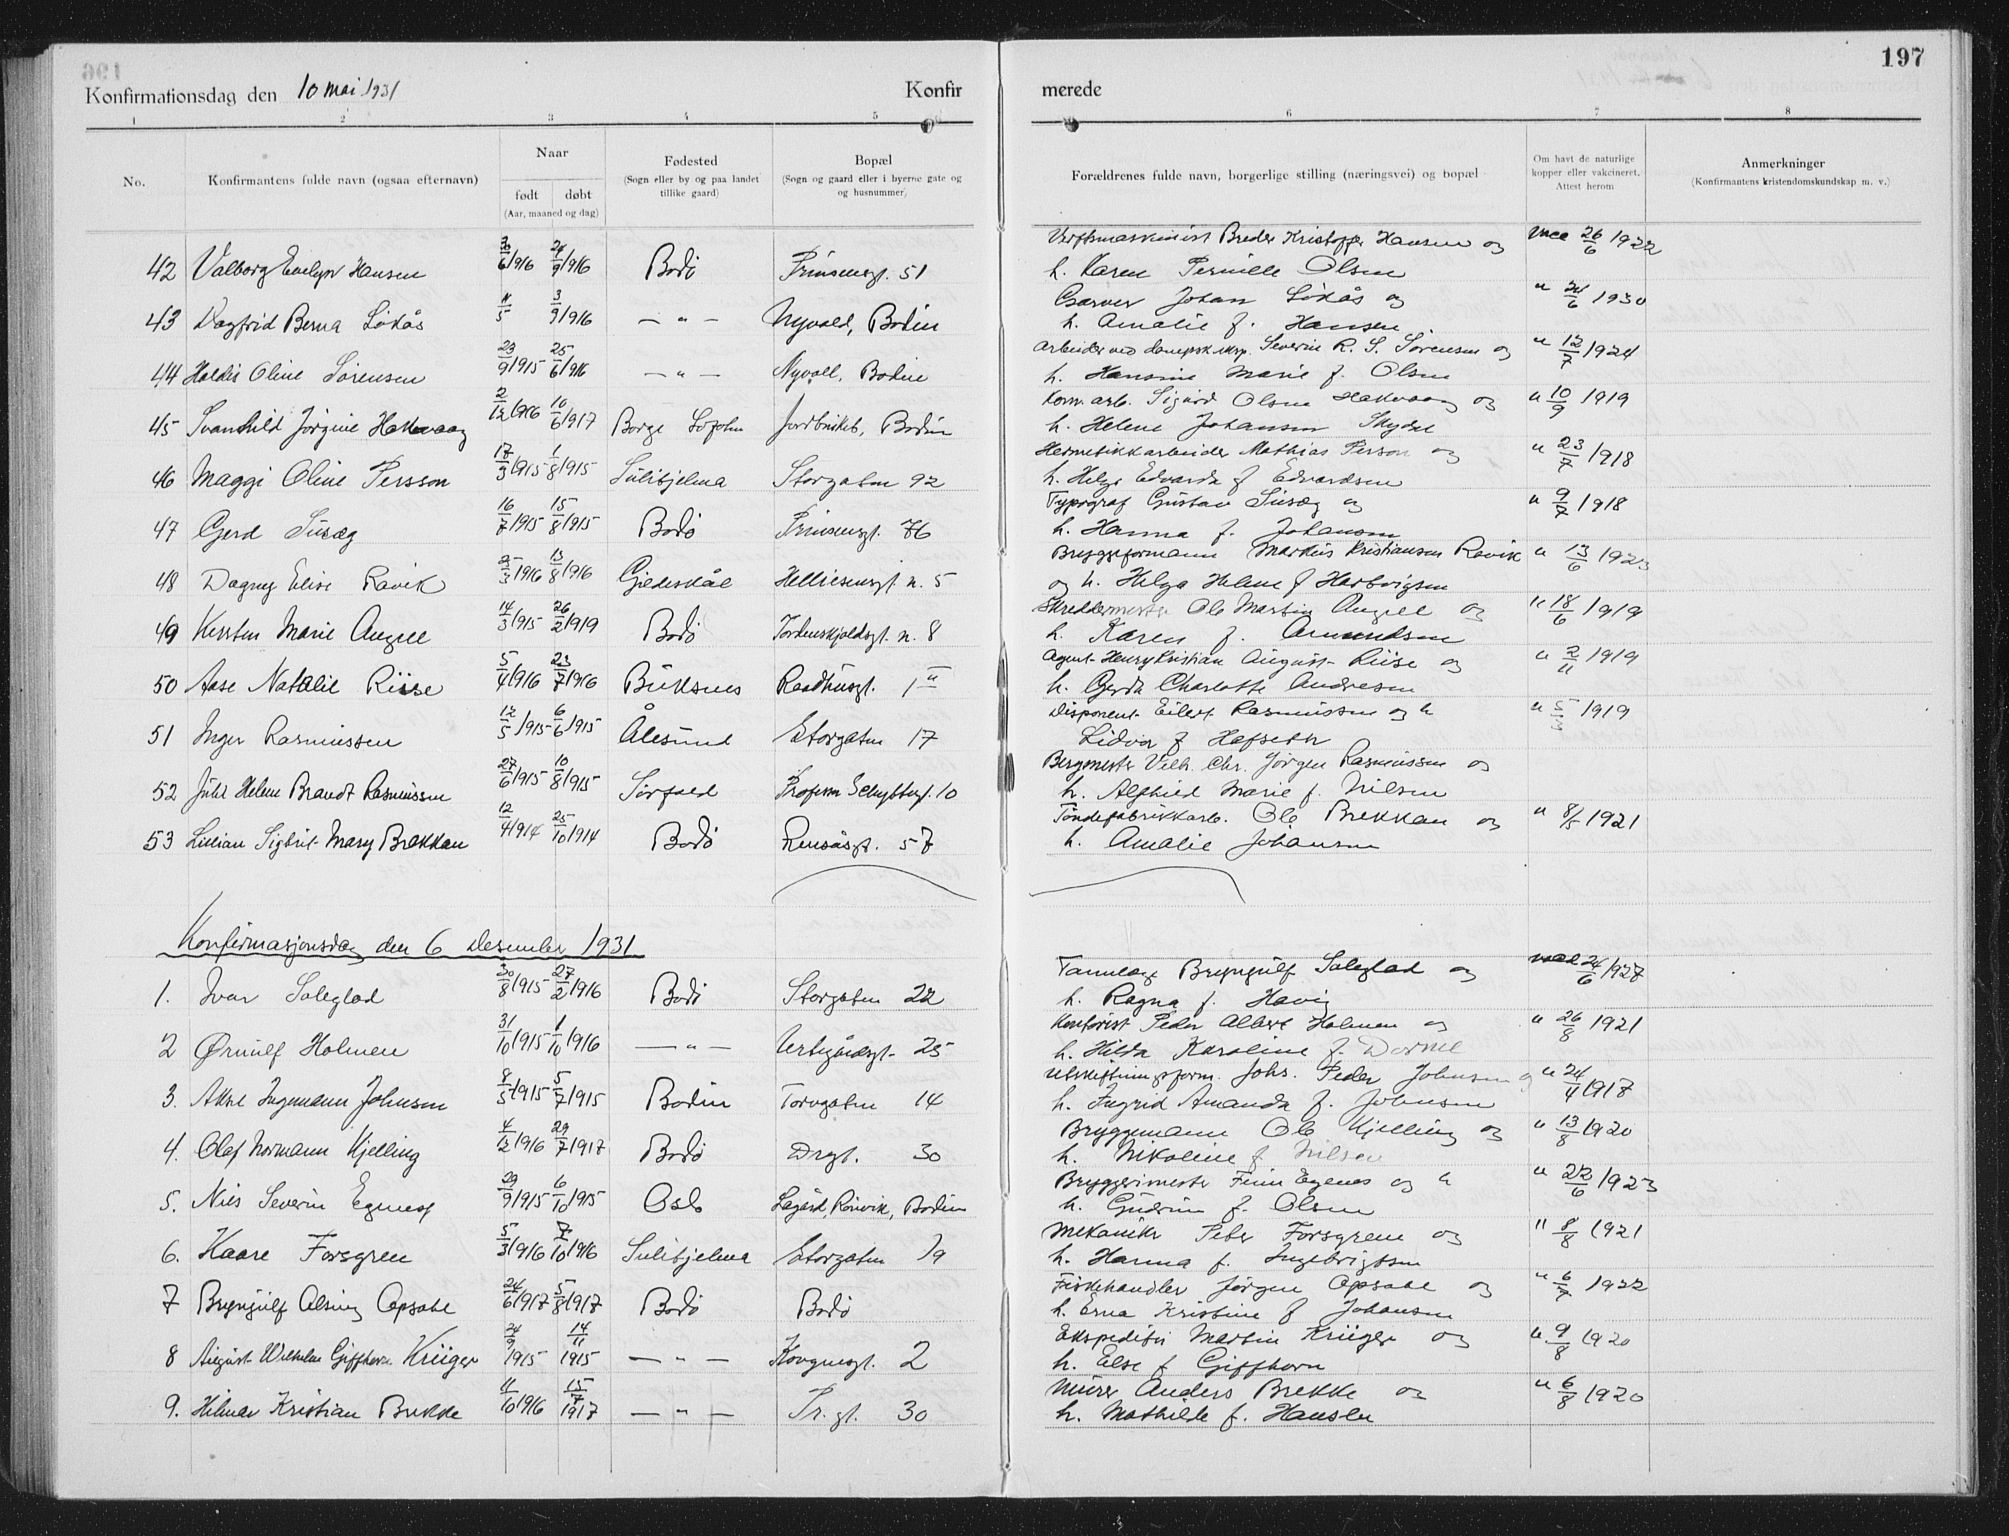 197
Konfirmationsdag den 10 mai 1931 Konfir merede
1 2 3 4 5 6 7 8
No. Konfirmantens fulde navn (ogsaa efternavn) Naar født døbt (Aar, maaned og dag) Fødested (Sogn eller by og paa landet tillike gaard) Bopæl (Sogn og gaard eller i byerne gate og og husnummer) Forældrenes fulde navn, borgerlige stilling (næringsvei) og bopæl Om havt de naturlige kopper eller vakcineret. Attest herom Anmerkninger (Konfirmantens kristendomskundskap m. v.)
42 Valborg Evelyn Hansen 30/6 1916 24/9 1916 Bodö Prinsensgt. 51 Breder Kristoffer Hansen og vacc 26/6 1922
h. Karen Pernille Olsen
43 Dagfrid Berna Lökås 11/5 3/9 1916 — " — Nyvold, Bodin Garver Johan Lökås og " 24/6 1930
h. Amalie f. Hansen
44 Haldis Oline Sörensen 23/9 1915 25/6 1916 — " — Nyvoll, Bodin Arbeider ved dampsk.eksp. Severin R. S. Sörensen og " 12/7 1924
h. Hansine Marie f. Olsen
45 Svanhild Jörgine Hakvaag 2/12 1916 10/6 1917 Borge Lofoten Jordbruksb, Bodin Kom. arb. Sigurd Olsen Hakvaag og " 10/9 1919
h. Helene Johansen
46 Maggi Oline Persson 17/3 1915 1/8 1915 Sulitjelma Storgaten 92 Hermetikkarbeider Mathias Person og " 23/7 1918
h. Helga Edvarda f Edvardsen
47 Gerd 16/7 1915 15/8 1915 Bodö Prinsensgt. 76 Typograf Gustav og " 9/7 1918
h. Hanna f. Johansen
48 Dagny Elise Ravik 25/3 1916 13/8 1916 Gjildeskål Hellriesensgt n. 5 Bryggeformann Markus Kristiansen Ravik " 13/6 1923
og h. Helga Helene f Hartvigsen
49 Kirsten Marie Angell 14/3 1915 26/2 1919 Bodö Tordenskjoldsgt. n. 8 Skreddermester Ole Martin Angell og " 18/6 1919
h. Karen f. Amundsen
50 Aase Natalie Riise 5/4 1916 23/7 1916 Buksnes Raadhusgt. 1 Agent Henry Kristian August Riise og " 2/11 1919
h. Gerda Charlotte Andresen
51 Inger Rasmussen 12/5 1915 6/6 1915 Ålesund Storgaten 17 Disponent Eilert Rasmussen og h " 5/3 1919
Lidva f Hafseth
52 Juhl Helene Brandt Rasmussen 27/6 1915 10/8 1915 Sörfold Profesor Schyttesgt. 10 Bergmester Vilh. Chr. Jörgen Rasmussen og
h. Alfhild Marie f. Nilsen
53 Lillian Sigbrit Mary Brekkan 12/4 1914 25/10 1914 Bodö Rensåsgt. 57 Töndefabrikkarb. Ole Brekkan og " 8/5 1921
h. Amalie Johansen
Konfirmasjonsdag den 6 Desember 1931
1. Ivar Soleglad 30/8 1915 27/2 1916 Bodö Storgaten 22 Tannlæge Bryngulf Soleglad og vacc 24/6 1927
h. Ragna f. Havig
2 Ørnulf Holmen 31/10 1915 1/10 1916 — " — 25 Kontorist Peder Albert Holmen og " 26/8 1921
h. Hilda Karoline f.
3. Aksel Ingemann Johnsen 8/5 1915 5/7 1915 Bodin Torvgaten 14 Utskiftningsform. Johs. Peder Johnsen og " 24/4 1917
h. Ingrid Amanda f. Johnsen
4. Olaf Normann Kjelling 4/12 1916 29/7 1917 Bodö Drgt. 30 Bryggemann Ole Kjelling og " 13/8 1920
h. Nikoline f Nilsen
5. Nils Severin Egenes 29/9 1915 6/10 1915 Oslo Lågård, Rönvik, Bodin Bryggerimester Finn Egenes og h " 22/6 1923
h. Gudrun f. Olsen
6. Kaare Forsgren 5/3 1916 7/10 1916 Sulitjelma Storgaten 19 Mekaniker Peter Forsgren og " 8/8 1921
h. Hanna f. Ingebrigtsen
7 Bryngulf Alsing Opsahl 24/6 1917 5/8 1917 Bodö Bodö Fiskehandler Jörgen Opsahl og " 6/7 1922
h. Erna Kristine f Johansen
8 August Wilhelm Giffhorn Krüger 24/9 1915 14/11 1915 — " — Kongensgt. 2 Ekspeditör Martin Krüger og " 9/8 1920
h. Else f Giffhorn
9. Hilmar Kristian Brekke 11/10 1916 15/7 1917 — " — Pr. gt. 30 Murer Anders Brekke og " 6/8 1920
h. Mathilde f. Hansen